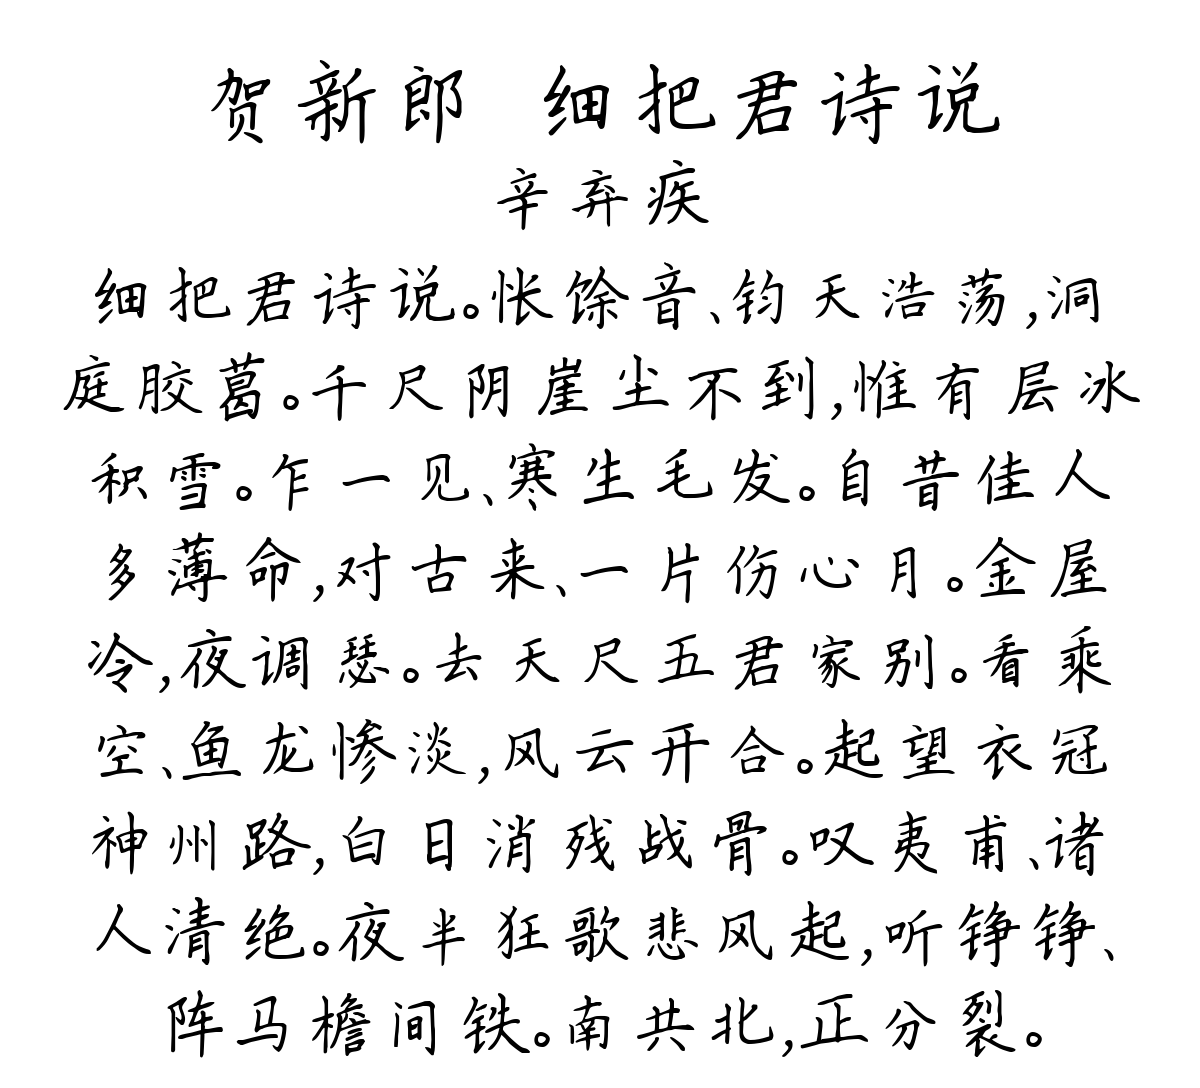 贺新郎 细把君诗说
辛弃疾
细把君诗说。怅馀音、钧天浩荡,洞
庭胶葛。千尺阴崖尘不到,惟有层冰
积雪。乍一见、寒生毛发。自昔佳人
多薄命,对古来、一片伤心月。金屋
冷,夜调瑟。去天尺五君家别。看乘
空、鱼龙惨淡,风云开合。起望衣冠
神州路,白日消残战骨。叹夷甫、诸
人清绝。夜半狂歌悲风起,听铮铮、
阵马檐间铁。南共北,正分裂。